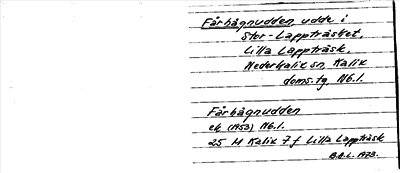 Fårhägnudden, udde i
Stor-Lappträsket,
Lilla Lappträsk,
Nederkalix sn, Kalix
doms.tg, Nb.l.
Fårhägnudden
ek (1953) Nb.l.
25 M Kalix 7 f Lilla Lappträsk
B.R.L. 1973.